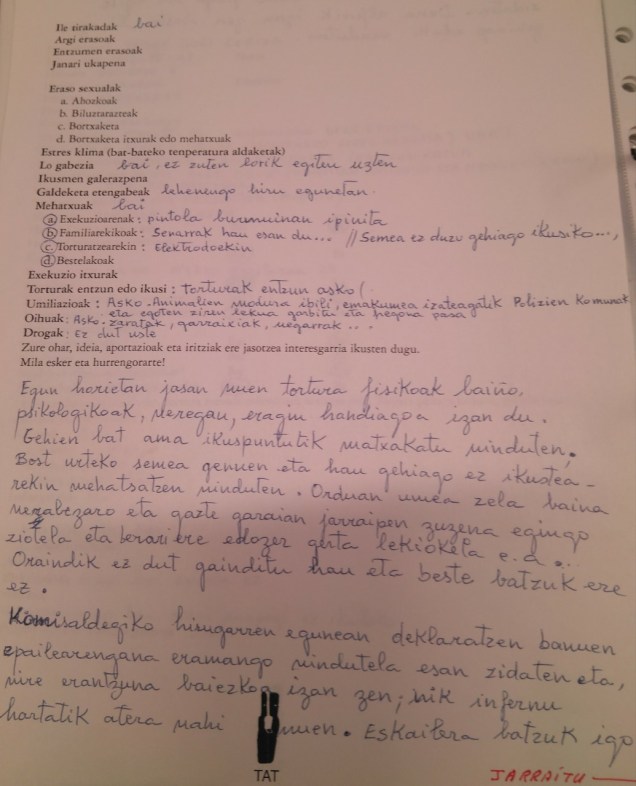 Ile tirakadak bai
Argi erasoak
Entzumen erasoak
Janari ukapena
Eraso sexualak
a. Ahozkoak
b. Biluztarazteak
c. Bortxaketa
d. Bortxaketa itxurak edo mehatxuak
Estres klima (bat-bateko tenperatura aldaketak)
Lo gabezia bai, ez zuten lorik egiten uzten
Ikusmen galerazpena
Galdeketa etengabeak lehenengo hiru egunetan
Mehatxuak bai
a Exekuzioarenak : pintola burmuinan ipinita
b Familiarekikoak : Senarrak hau esan du... // Semea ez duzu gehiago ikusiko...,
c. Torturatzearekin : Elektrodoekin
d Bestelakoak
Exekuzio itxurak
Torturak entzun edo ikusi : torturak entzun asko!
Umiliazioak : Asko. Animalien modura ibili, emakumea izateagatik Polizien komunak
eta egoten ziren lekua garbitu eta fregona pasa
Oihuak : Asko. zaratak, garraixiak, negarrak ...
Drogak : Ez dut uste
Zure ohar, ideia, aportazioak eta iritziak ere jasotzea interesgarria ikusten dugu.
Mila esker eta hurrengorarte!
Egun harietan jasan nuen tortura fisikoak baiño,
psikologikoak, neregan, eragin handiagoa izan du.
Gehien bat ama ikuspuntutik matxakatu ninduten.
Bost urteko semea genuen eta hau gehiago ez ikustea-
rekin mehatsatzen ninduten. Orduan umea zela baina
nerabezaro eta gazte garaian jarraipen zuzena egingo
ziotela eta berari ere edozer gerta lekiokela e.a...
Oraindik ez dut gainditu hau eta beste batzuk ere
ez.
Komisaldegiko hirugarren egunean deklaratzen banuen
epailearengana eramango nindutela esan zidaten eta,
nire erantzuna baiezkoa izan zen; nik infernu
hartatik atera nahi nuen. Eskailera batzuk igo
TAT
JARRAITU